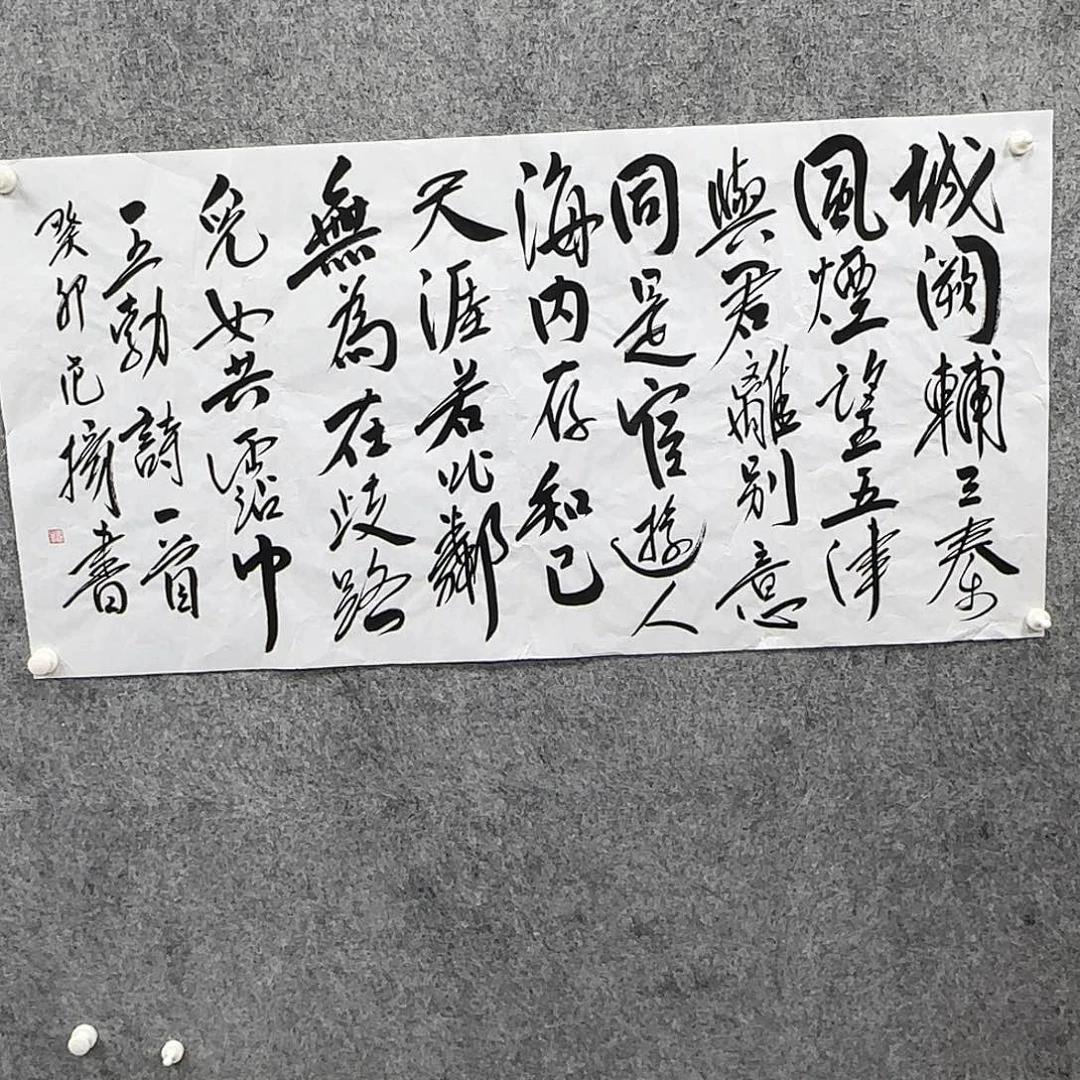 城闕輔三秦
風煙望五津
與君離别意
同是宦遊人
海内存知己
天涯若比鄰
無為在歧路
兒女共霑巾
王勃詩一首
癸卯范
書